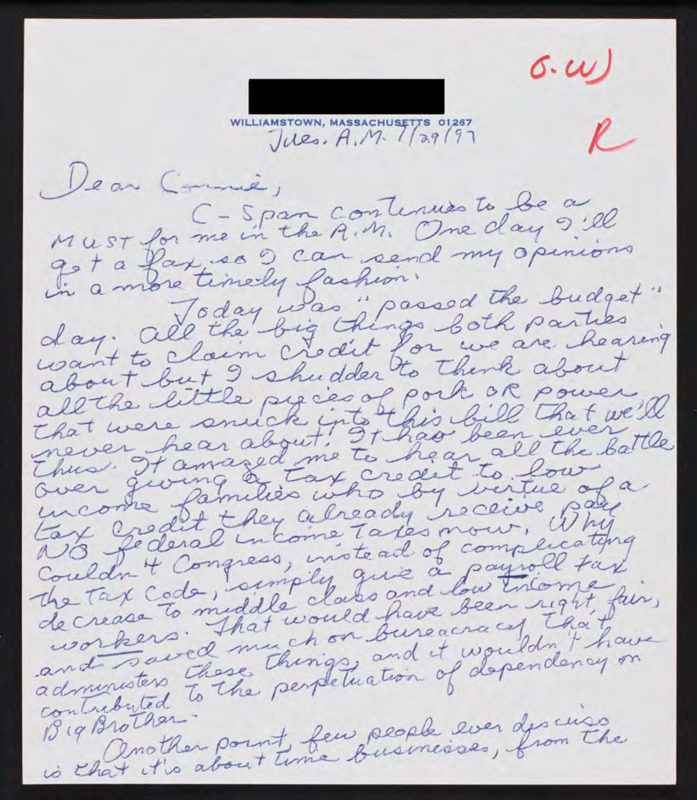 G.W)
R
WILLIAMSTOWN, MASSACHUSETTS 01267
Tues. A.M. 7/29/97
Dear Connie,
C-Span continues to be a
MUST for me in the A.M. One day I'll
get a fax so I can send my opinions
in a more timely fashion.
Today was "passed the budget"
day. All the big things both parties
want to claim credit for we are hearing
about but I shudder to think about
all the little pieces of pork OR power
that were snuck into this bill that we'll
never hear about! It has been ever
thus. It amazed me to hear all the battle
over giving a tax credit to low
income families who by virtue of a
tax credit they already receive pay
NO federal income taxes now. Why
couldn't Congress, instead of complicating
the tax code, simply give a payroll tax
decrease to middle class and low income
workers. That would have been right, fair,
and saved much on bureacracy that
administers these things, and it wouldn't have
contributed to the perpetuation of dependency on
Big Brother.
Another point few people ever discuss
is that it's about time businesses, from the